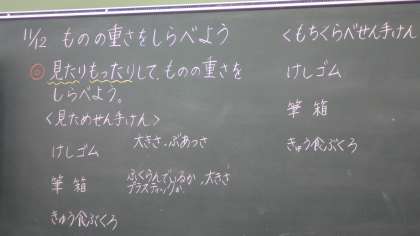 11/12 ものの重さをしらべよう
◎見たりもったりして、ものの重さを
しらべよう。
〈見ためせん手けん〉
けしゴム 大きさ、ぶあつさ
筆箱 ふくらんでいるか、大きさ
プラスティックか
きゅう食ぶくろ
〈もちくらべせん手けん
けしゴム
筆箱
きゅう食ぶくろ